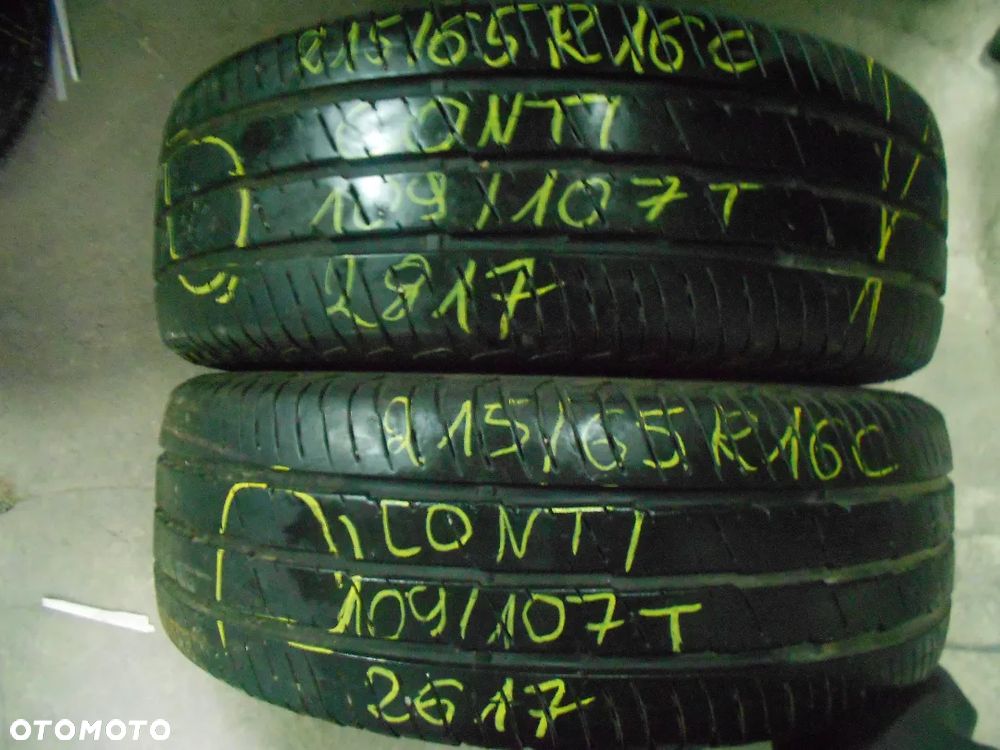 215/65 R16C
CONTI
109/107T
2817
215/65 R16C
CONTI
109/107T
2617
OTOMOTO